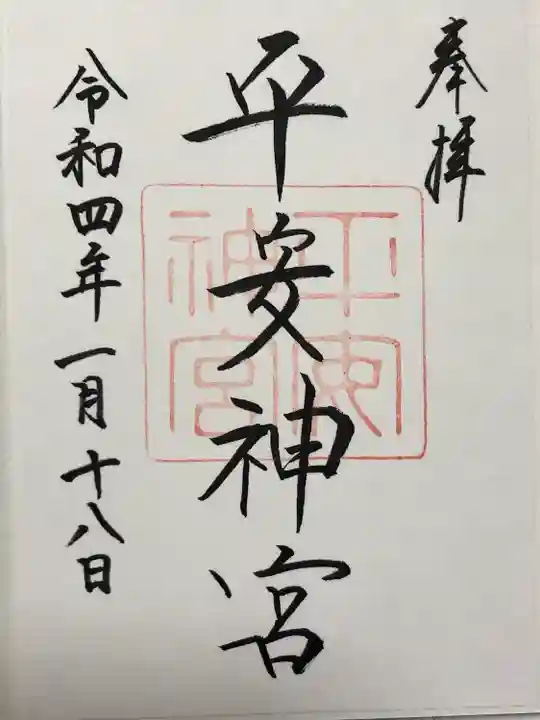 奉拝
平安神宮
平安神宮
令和四年一月十八日